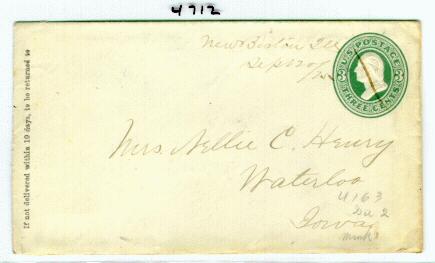 4712
If not delivered within 10 days, to be returned to
New Boston Ill
Sept 20/
U.S. POSTAGE
3 3
THREE CENTS
Mrs. Nellie C. Henry
Waterloo
Iowa
U163
Die 2